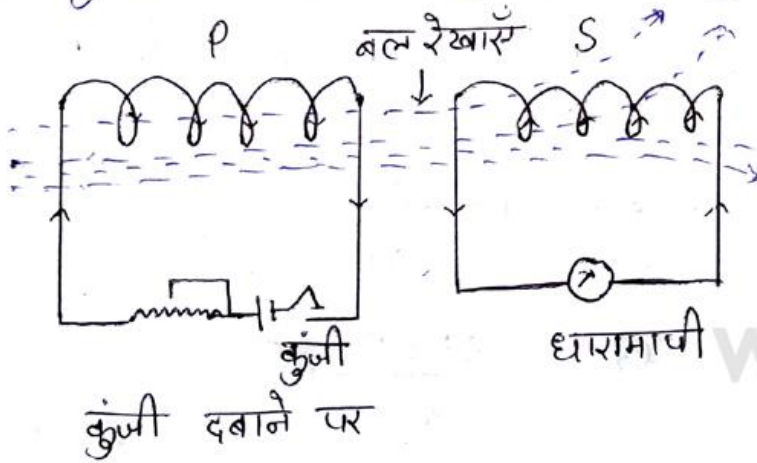 P बल रेखाएँ S
कुंजी
धारामापी
कुंजी दबाने पर